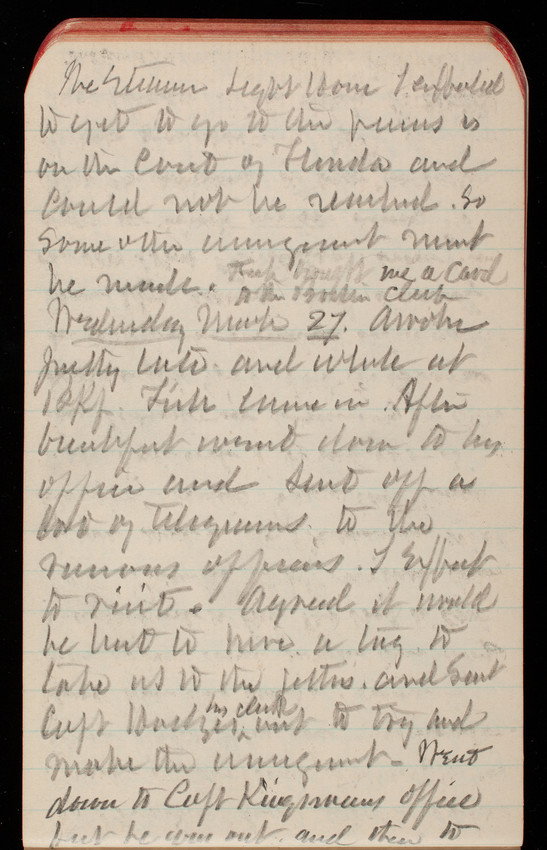 The Steamer Light House I expected
to get to go to the piers is
on the Coast of Florida and
Could not be reached. So
Some other arrangement must
be made. Fisk brought me a Card
to the Boston Club
Wednesday March 27. Awoke
pretty late and while at
Bkf Fisk came in. After
breakfast went down to his
office and Sent off a
lot of telegrams to the
various officers I Expect
to visit. Agreed it would
be best to hire a tug to
take us to the jetties. and Sent
Capt his clerk out to try and
make the arrangement - Went
down to Capt Kingmans office
but he was out. and then to